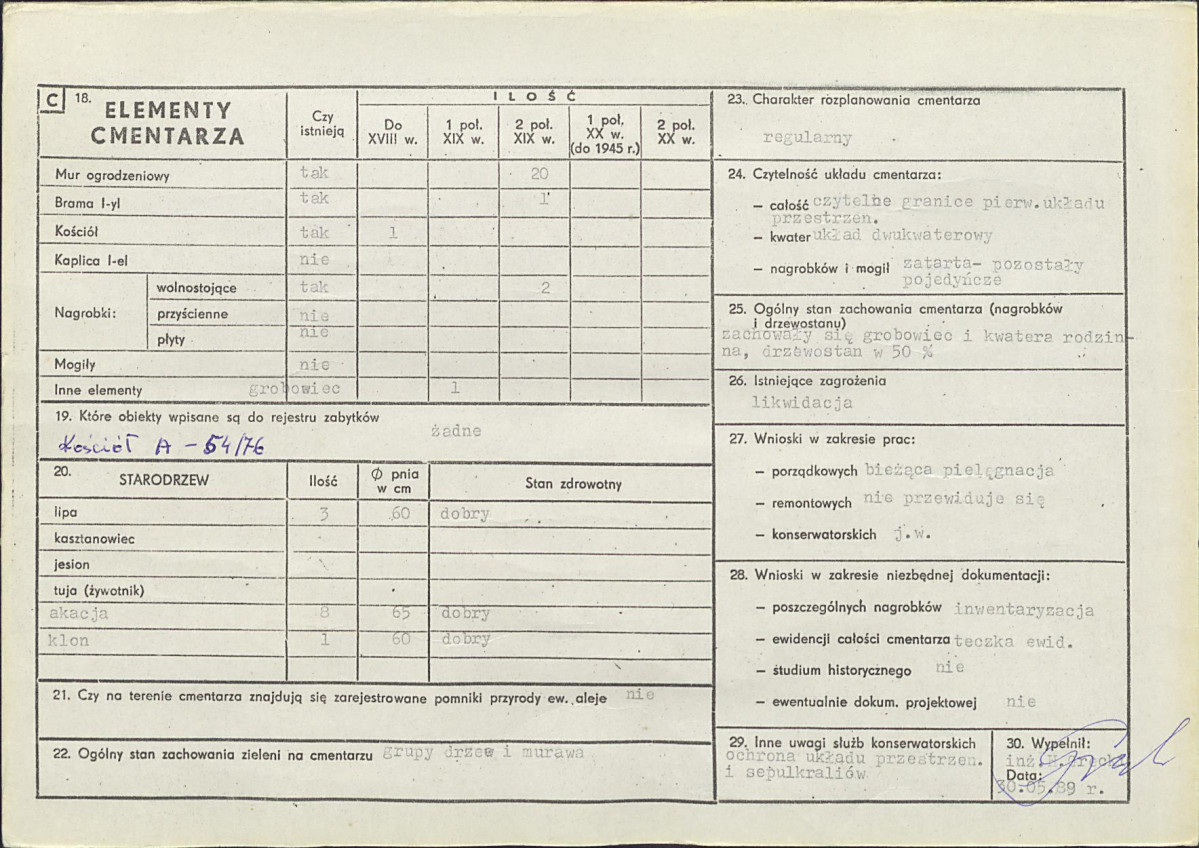 C 18. ELEMENTY CMENTARZA
Czy istnieją
ILOŚĆ
Do XVIII w.
1 poł. XIX w.
2 poł. XIX w.
1 poł. XX w. (do 1945 r.)
2 poł. XX w.
Mur ogrodzeniowy tak 20
Brama I-yl tak 1
Kościół tak 1
Kaplica I-el nie
Nagrobki:
wolnostojące tak 2
przyścienne nie
płyty nie
Mogiły nie
Inne elementy grobowiec 1
19. Które obiekty wpisane są do rejestru zabytków
żadne
Kościół A - 54/76
20. STARODRZEW Ilość Ø pnia w cm Stan zdrowotny
lipa 3 60 dobry
kasztanowiec
jesion
tuja (żywotnik)
akacja 8 65 dobry
klon 1 60 dobry
21. Czy na terenie cmentarza znajdują się zarejestrowane pomniki przyrody ew. aleje nie
22. Ogólny stan zachowania zieleni na cmentarzu grupy drzew i murawa
23. Charakter rozplanowania cmentarza
regularny
24. Czytelność układu cmentarza:
— całość czytelne granice pierw.układu
przestrzen.
— kwater układ dwukwaterowy
— nagrobków i mogił zatarta- pozostały
pojedyńcze
25. Ogólny stan zachowania cmentarza (nagrobków
i drzewostanu)
zachowały się grobowiec i kwatera rodzin-
na, drzewostan w 50 %
26. Istniejące zagrożenia
likwidacja
27. Wnioski w zakresie prac:
— porządkowych bieżąca pielęgnacja
— remontowych nie przewiduje się
— konserwatorskich j.w.
28. Wnioski w zakresie niezbędnej dokumentacji:
— poszczególnych nagrobków inwentaryzacja
— ewidencji całości cmentarza teczka ewid.
— studium historycznego nie
— ewentualnie dokum. projektowej nie
29. Inne uwagi służb konserwatorskich
ochrona układu przestrzen.
i sepulkraliów
30. Wypełnił:
inż.
Data:
30.05.89 r.